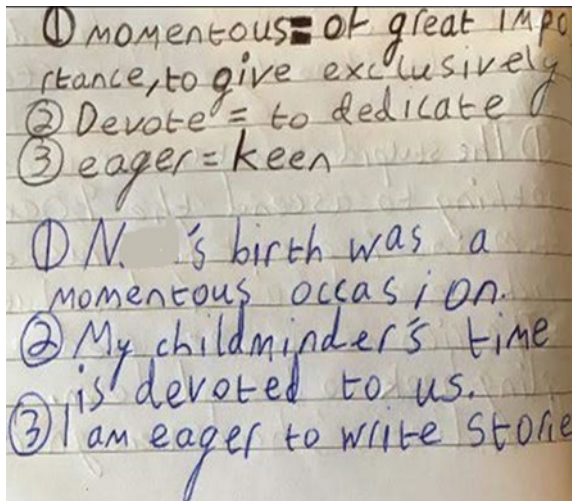 ① momentous = of great impo
rtance, to give exclusively
② Devote = to dedicate
③ eager = keen
① N. 's birth was a
momentous occasion.
② My childminder's time
is devoted to us.
③ I am eager to write storie